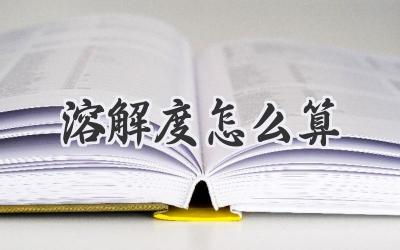 溶解度怎么算